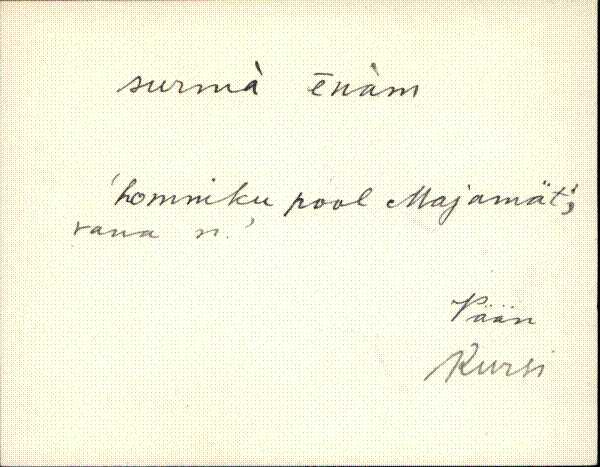 surmà ēnàm
'homniku pool Majamät';
vana n.'
Vään
Kursi